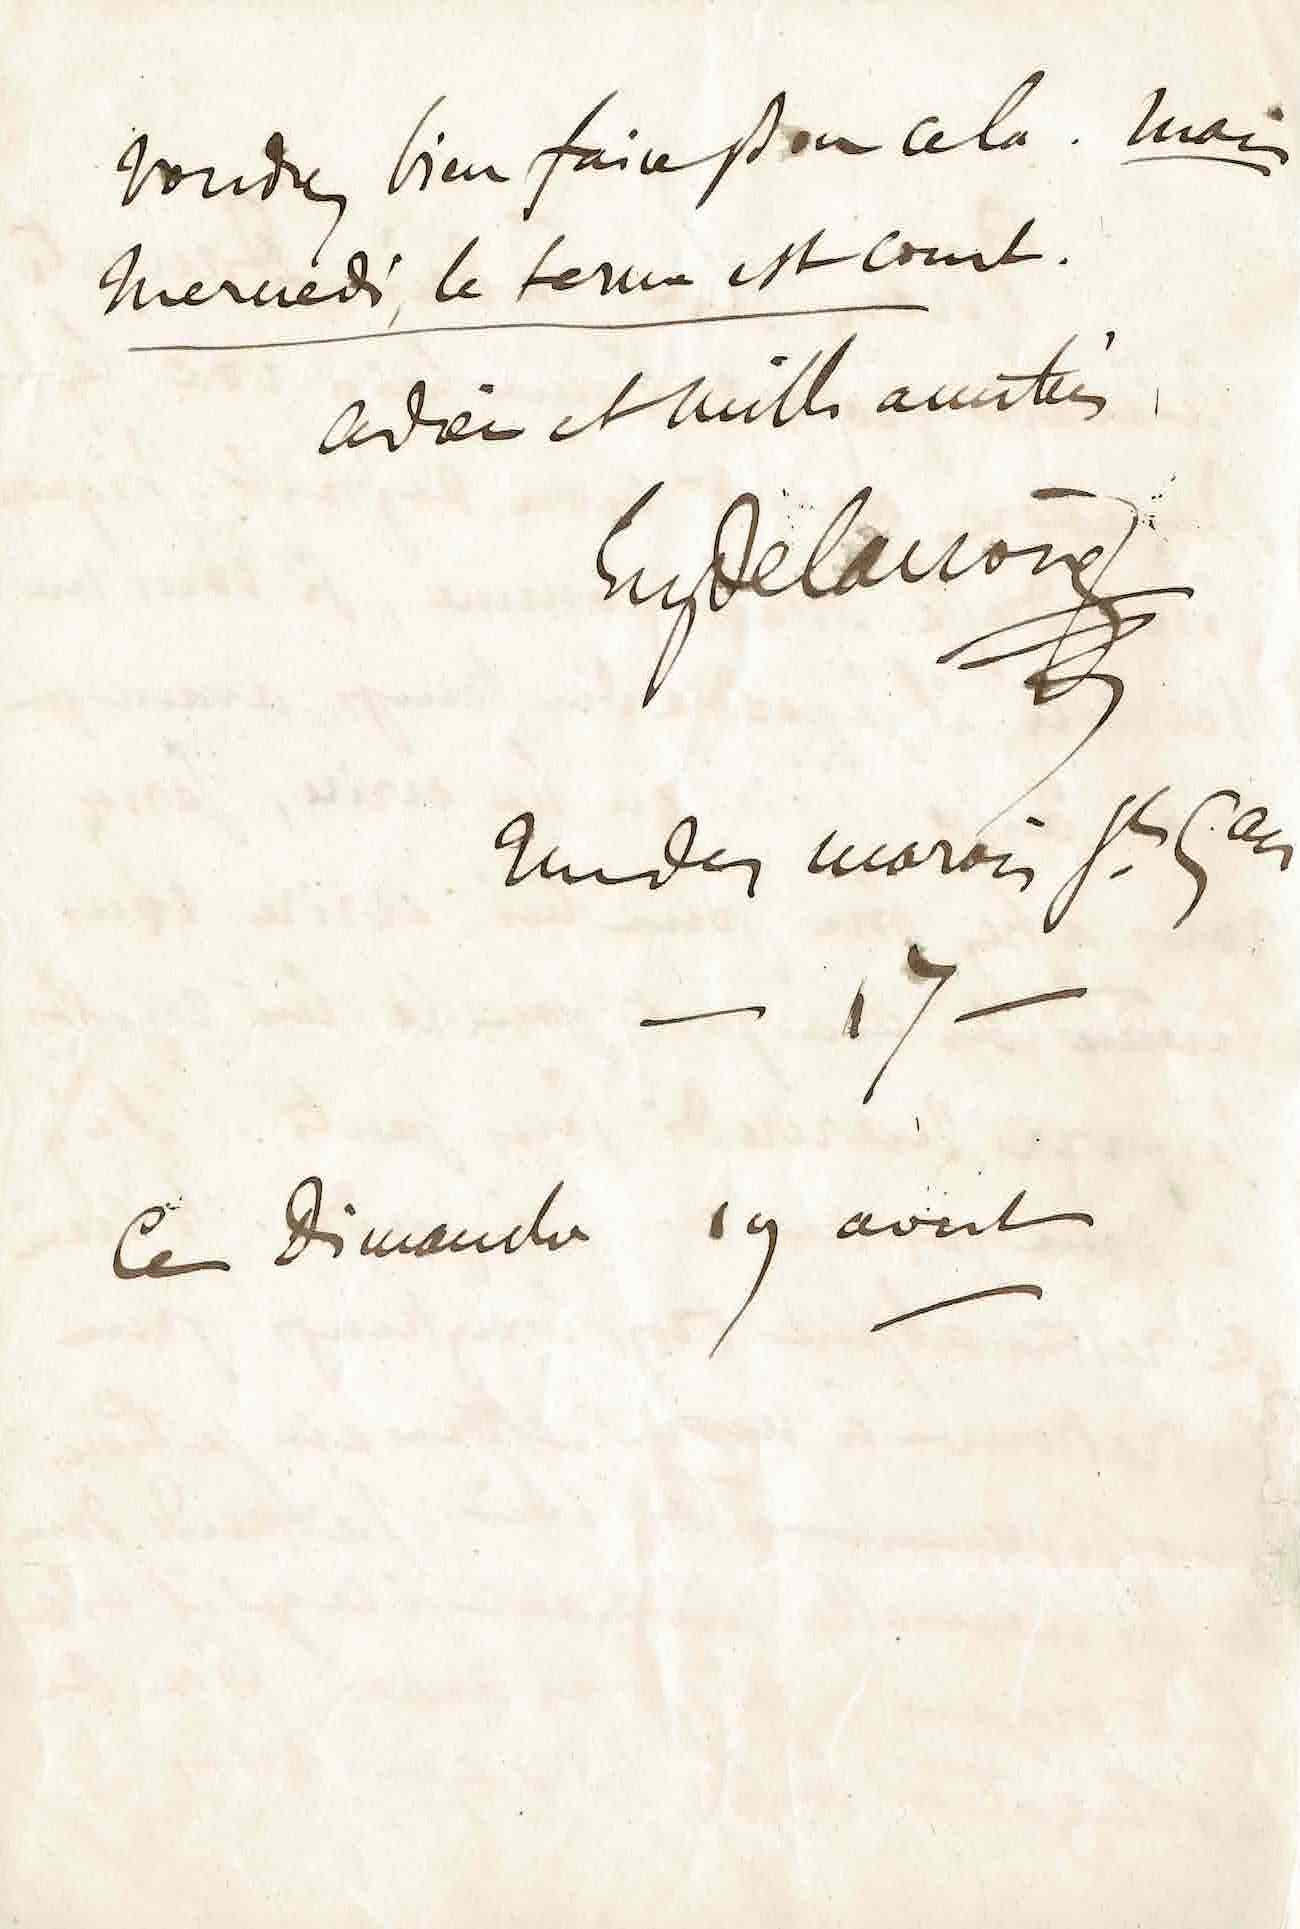 voudrez bien faire pour cela. Mais
Mercredi, le terme est court.
adieu et mille amitiés
EugDelacroix
rue des marais St. Ger
— 17 —
Ce Dimanche 19 aout